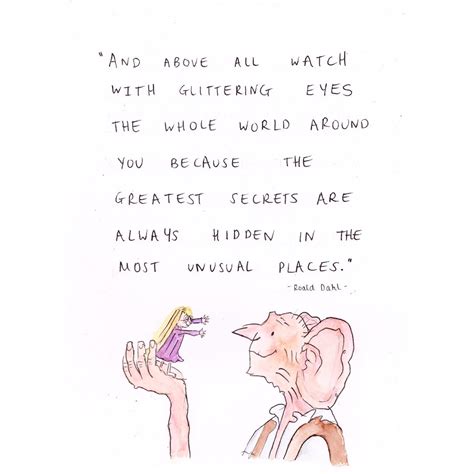 "AND ABOVE ALL WATCH
WITH GLITTERING EYES
THE WHOLE WORLD AROUND
YOU BECAUSE THE
GREATEST SECRETS ARE
ALWAYS HIDDEN IN THE
MOST UNUSUAL PLACES."
- Roald Dahl -